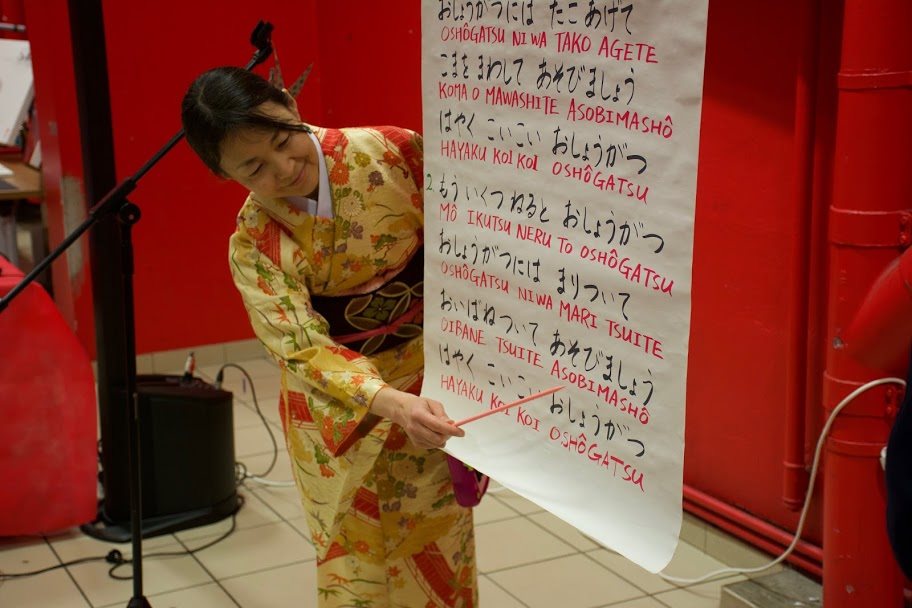 おしょうがつには たこあげて
OSHÔGATSU NI WA TAKO AGETE
こまを まわして あそびましょう
KOMA O MAWASHITE ASOBIMASHÔ
はやく こいこい おしょうがつ
HAYAKU KOI KOI OSHÔGATSU
2. もう いくつ ねると おしょうがつ
MÔ IKUTSU NERU TO OSHÔGATSU
おしょうがつには まりついて
OSHÔGATSU NI WA MARI TSUITE
おいばねついて あそびましょう
OIBANE TSUITE ASOBIMASHÔ
はやく こいこい おしょうがつ
HAYAKU KOI KOI OSHÔGATSU